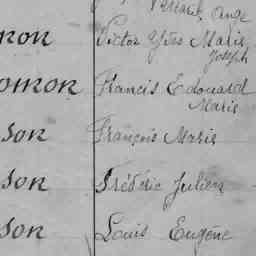 Marie Ange
non Victor Yves Marie
Joseph
omon Francis Edouard
Marie
son François Marie
son Frédéric Julien
son Louis Eugène